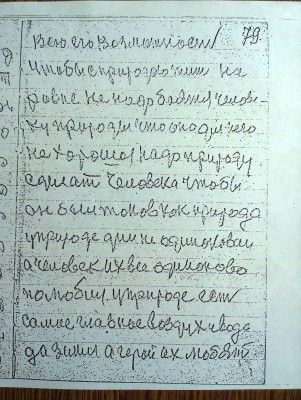 79
всю его возможность
чтобы с природою жит на
ровне не надо боятся челове-
ку природы что она для него
не хороша надо природу
сделат человека чтобы
он был таков как природа
у природе они не одинаковаи
а человек их все одинаково
полюбил у природе ест
самое главное воздух и вода
да земля а герой их любят